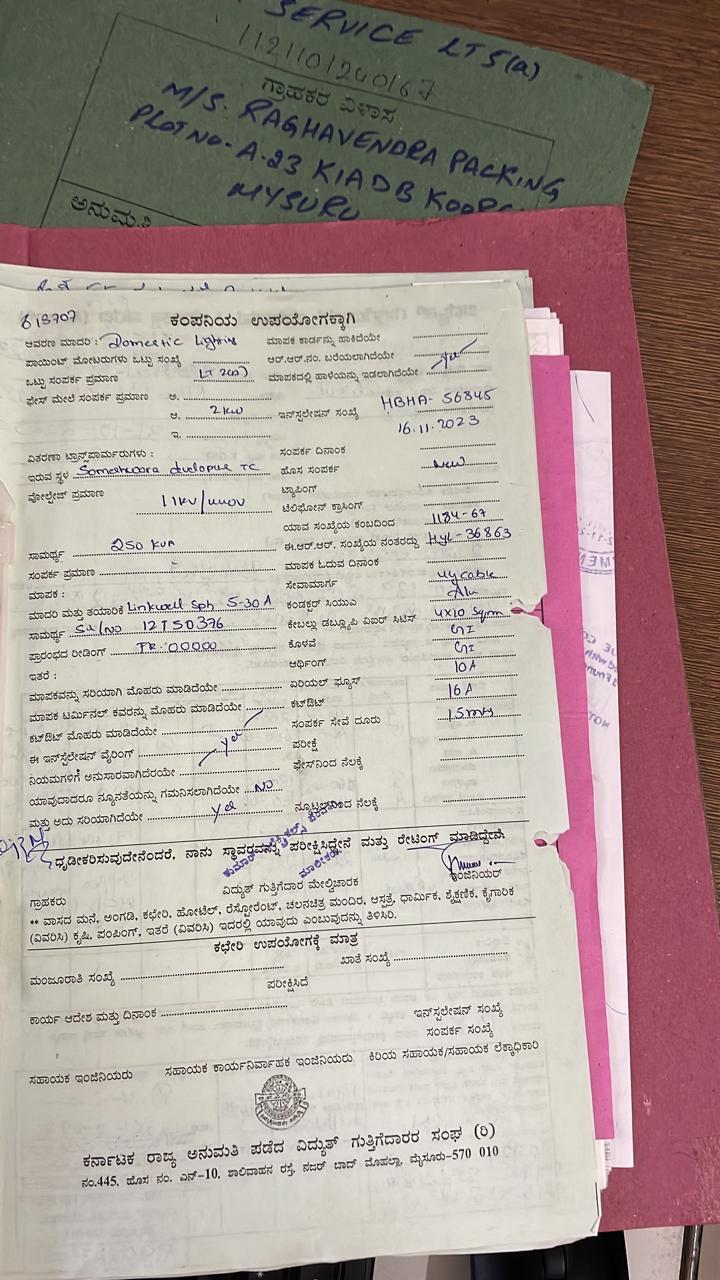 SERVICE LT5(a)
112110124016?
ಗ್ರಾಹಕರ ವಿಳಾಸ
M/S. RAGHAVENDRA PACKING
PLOT NO- A-23 KIADB KOORG
MYSURU
ಅನುಮತಿ
613707
ಕಂಪನಿಯ ಉಪಯೋಗಕ್ಕಾಗಿ
ಆವರಣ ಮಾದರಿ : Domestic Lighting ಮಾಪಕ ಕಾರ್ಡನ್ನು ಹಾಕಿದೆಯೇ
ಪಾಯಿಂಟ್ ಮೋಟರುಗಳು ಒಟ್ಟು ಸಂಖ್ಯೆ ಆರ್.ಆರ್.ನಂ. ಬರೆಯಲಾಗಿದೆಯೇ
ಒಟ್ಟು ಸಂಪರ್ಕ ಪ್ರಮಾಣ LT 2(a) ಮಾಪಕದಲ್ಲಿ ಹಾಳೆಯನ್ನು ಇಡಲಾಗಿದೆಯೇ yes
ಫೇಸ್ ಮೇಲೆ ಸಂಪರ್ಕ ಪ್ರಮಾಣ ಅ.
ಆ. 2 KW ಇನ್‌ಸ್ಟಲೇಷನ್ ಸಂಖ್ಯೆ HBHA- 56845
ಇ. 16.11.2023
ವಿತರಣಾ ಟ್ರಾನ್ಸ್‌ಫಾರ್ಮರುಗಳು : ಸಂಪರ್ಕ ದಿನಾಂಕ
ಇರುವ ಸ್ಥಳ Someshwara TC ಹೊಸ ಸಂಪರ್ಕ New
ವೋಲ್ಟೇಜ್ ಪ್ರಮಾಣ 11KV/440V ಟ್ಯಾಪಿಂಗ್
ಟೆಲಿಫೋನ್ ಕ್ರಾಸಿಂಗ್
ಯಾವ ಸಂಖ್ಯೆಯ ಕಂಬದಿಂದ 1184-67
ಸಾಮರ್ಥ್ಯ 250 KVA ಈ.ಆರ್.ಆರ್. ಸಂಖ್ಯೆಯ ನಂತರದ್ದು HYL-36863
ಸಂಪರ್ಕ ಪ್ರಮಾಣ ಮಾಪಕ ಓದುವ ದಿನಾಂಕ
ಮಾಪಕ : ಸೇವಾಮಾರ್ಗ UG cable
ಮಾದರಿ ಮತ್ತು ತಯಾರಿಕೆ Linkwell Sph 5-30A ಕಂಡಕ್ಟರ್ ಸಿಯುಎ Alu
ಸಾಮರ್ಥ್ಯ Sl/No 12750376 ಕೇಬಲ್ಲು ಡಬ್ಲ್ಯೂಪಿ ವಿಐರ್ ಸಿಟಿಸ್ 4x10 Sqmm
ಪ್ರಾರಂಭದ ರೀಡಿಂಗ್ FR: 00000 ಕೊಳವೆ GI
ಇತರೆ : ಅರ್ಥಿಂಗ್ GI
ಮಾಪಕವನ್ನು ಸರಿಯಾಗಿ ಮೊಹರು ಮಾಡಿದೆಯೇ ಏರಿಯಲ್ ಫ್ಯೂಸ್ 10A
ಮಾಪಕ ಟರ್ಮಿನಲ್ ಕವರನ್ನು ಮೊಹರು ಮಾಡಿದೆಯೇ ಕಟ್‌ಔಟ್ 16A
ಕಟ್‌ಔಟ್ ಮೊಹರು ಮಾಡಿದೆಯೇ ಸಂಪರ್ಕ ಸೇವೆ ದೂರು 15mts
ಈ ಇನ್‌ಸ್ಟಲೇಷನ್ ವೈರಿಂಗ್ yes ಪರೀಕ್ಷೆ
ನಿಯಮಗಳಿಗೆ ಅನುಸಾರವಾಗಿದೆರಯೇ ಫೇಸ್‌ನಿಂದ ನೆಲಕ್ಕೆ
ಯಾವುದಾದರೂ ನ್ಯೂನತೆಯನ್ನು ಗಮನಿಸಲಾಗಿದೆಯೇ NO
ಮತ್ತು ಅದು ಸರಿಯಾಗಿದೆಯೇ yes ನ್ಯೂಟ್ರಲ್‌ನಿಂದ ನೆಲಕ್ಕೆ
ಧೃಡೀಕರಿಸುವುದೇನೆಂದರೆ, ನಾನು ಸ್ಥಾವರವನ್ನು ಪರೀಕ್ಷಿಸಿದ್ದೇನೆ ಮತ್ತು ರೇಟಿಂಗ್ ಮಾಡಿದ್ದೇನೆ.
ಮಾಲೀಕರು
ಗ್ರಾಹಕರು ವಿದ್ಯುತ್ ಗುತ್ತಿಗೆದಾರ ಮೇಲ್ವಿಚಾರಕ ಇಂಜಿನಿಯರ್
** ವಾಸದ ಮನೆ, ಅಂಗಡಿ, ಕಛೇರಿ, ಹೋಟೆಲ್, ರೆಸ್ಟೋರೆಂಟ್, ಚಲನಚಿತ್ರ ಮಂದಿರ, ಆಸ್ಪತ್ರೆ, ಧಾರ್ಮಿಕ, ಶೈಕ್ಷಣಿಕ, ಕೈಗಾರಿಕ
(ವಿವರಿಸಿ) ಕೃಷಿ, ಪಂಪಿಂಗ್, ಇತರೆ (ವಿವರಿಸಿ) ಇದರಲ್ಲಿ ಯಾವುದು ಎಂಬುವುದನ್ನು ತಿಳಿಸಿರಿ.
ಕಛೇರಿ ಉಪಯೋಗಕ್ಕೆ ಮಾತ್ರ
ಮಂಜೂರಾತಿ ಸಂಖ್ಯೆ ಖಾತೆ ಸಂಖ್ಯೆ
ಪರೀಕ್ಷಿಸಿದೆ
ಕಾರ್ಯ ಆದೇಶ ಮತ್ತು ದಿನಾಂಕ ಇನ್‌ಸ್ಟಲೇಷನ್ ಸಂಖ್ಯೆ
ಸಂಪರ್ಕ ಸಂಖ್ಯೆ
ಸಹಾಯಕ ಇಂಜಿನಿಯರು ಸಹಾಯಕ ಕಾರ್ಯನಿರ್ವಾಹಕ ಇಂಜಿನಿಯರು ಕಿರಿಯ ಸಹಾಯಕ/ಸಹಾಯಕ ಲೆಕ್ಕಾಧಿಕಾರಿ
ಕರ್ನಾಟಕ ರಾಜ್ಯ ಅನುಮತಿ ಪಡೆದ ವಿದ್ಯುತ್ ಗುತ್ತಿಗೆದಾರರ ಸಂಘ (ರಿ)
ನಂ.445, ಹೊಸ ನಂ. ಎನ್-10, ಶಾಲಿವಾಹನ ರಸ್ತೆ, ನಜರ್ ಬಾದ್ ಮೊಹಲ್ಲಾ, ಮೈಸೂರು-570 010